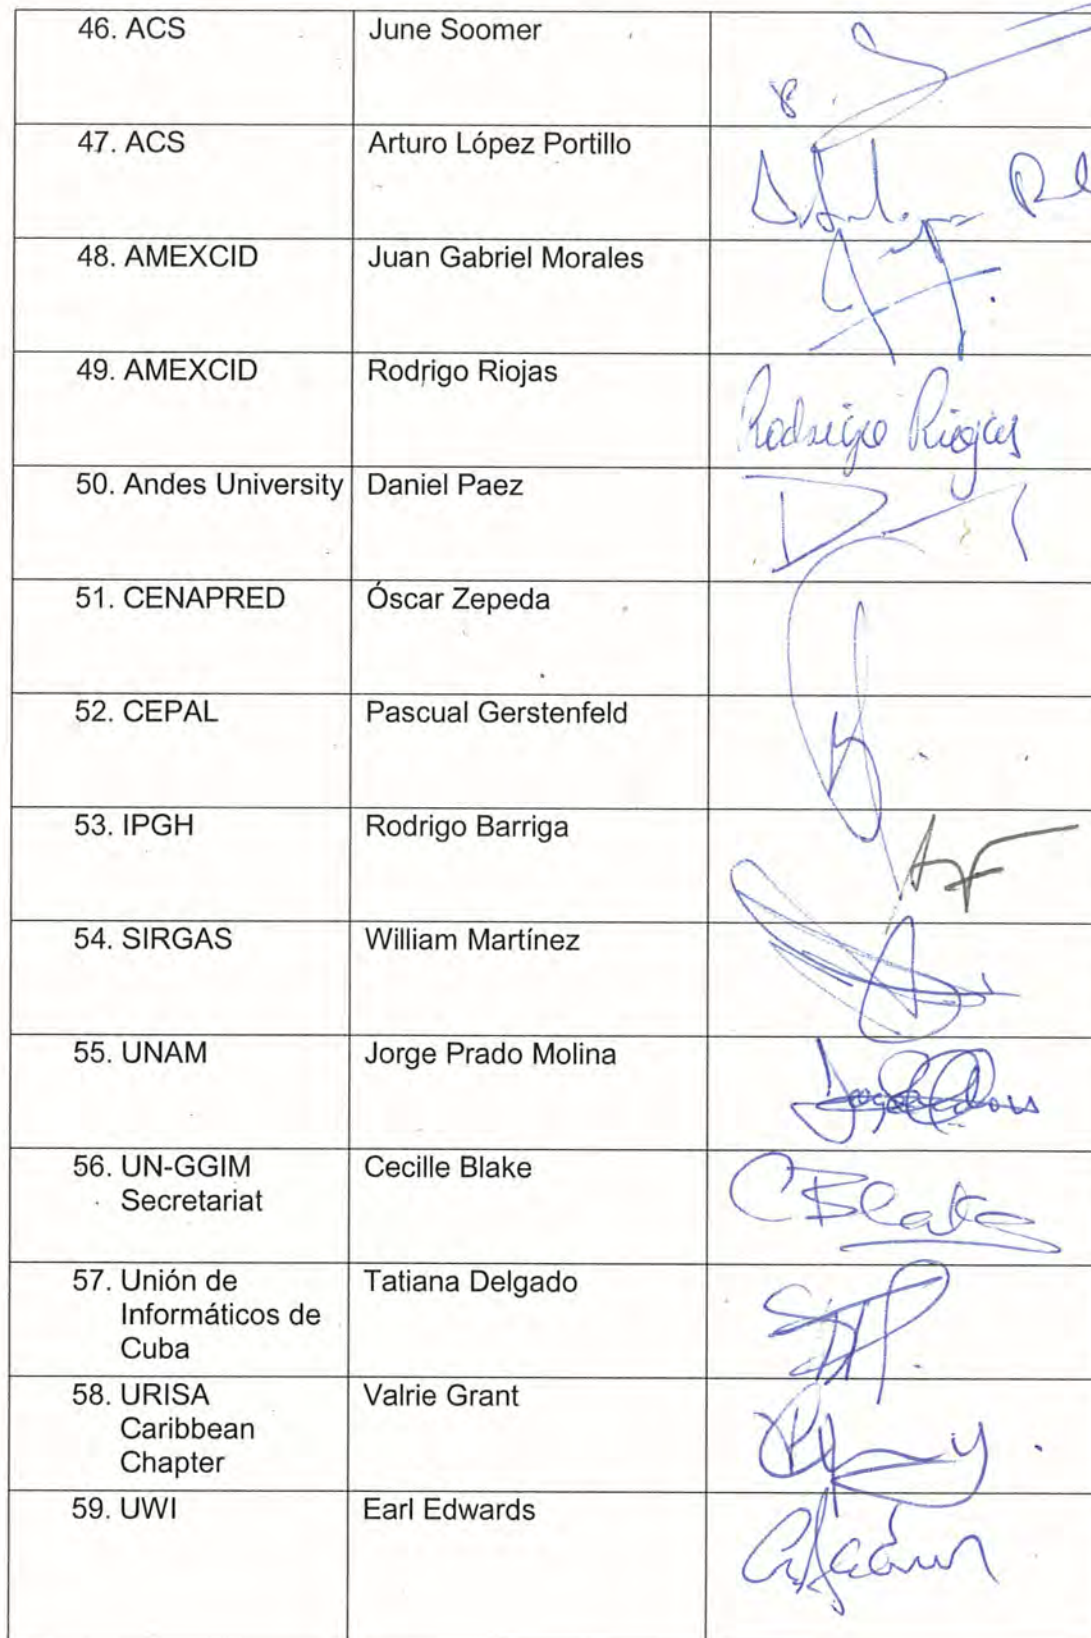 46. ACS June Soomer
47. ACS Arturo López Portillo
48. AMEXCID Juan Gabriel Morales
49. AMEXCID Rodrigo Riojas
Rodrigo Riojas
50. Andes University Daniel Paez
51. CENAPRED Óscar Zepeda
52. CEPAL Pascual Gerstenfeld
53. IPGH Rodrigo Barriga
54. SIRGAS William Martínez
55. UNAM Jorge Prado Molina
56. UN-GGIM Cecille Blake
Secretariat
CBlake
57. Unión de Tatiana Delgado
Informáticos de
Cuba
58. URISA Valrie Grant
Caribbean
Chapter
59. UWI Earl Edwards